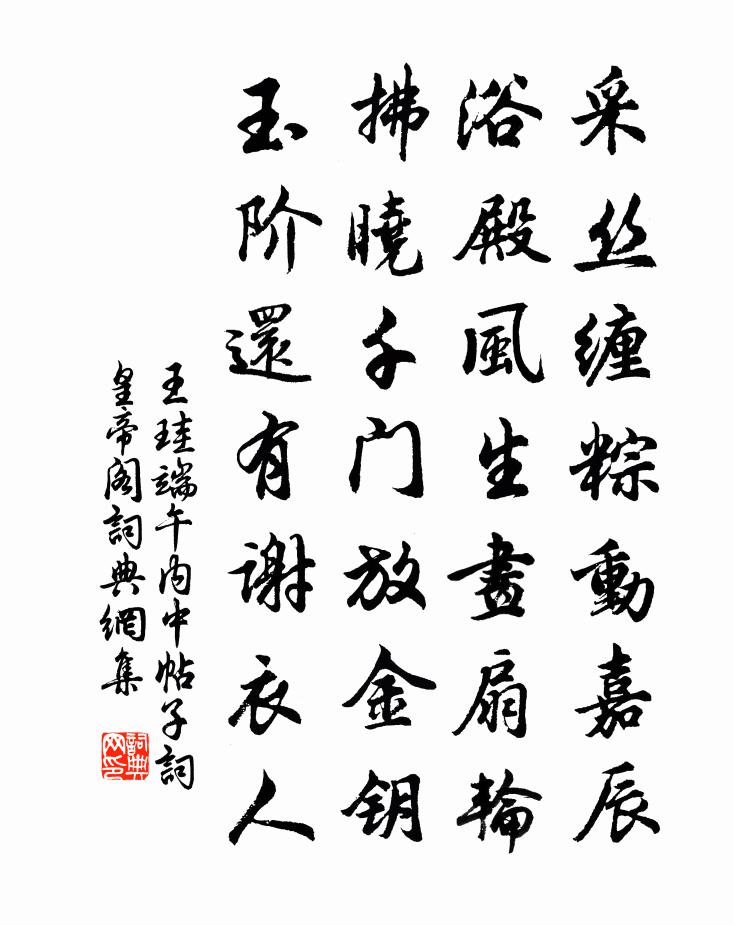 采丝缠粽動嘉辰
浴殿風生畫扇輪
拂曉千门放金钥
玉阶還有谢衣人
王珪端午内中帖子詞
皇帝阁詞典網集
詞典
网印